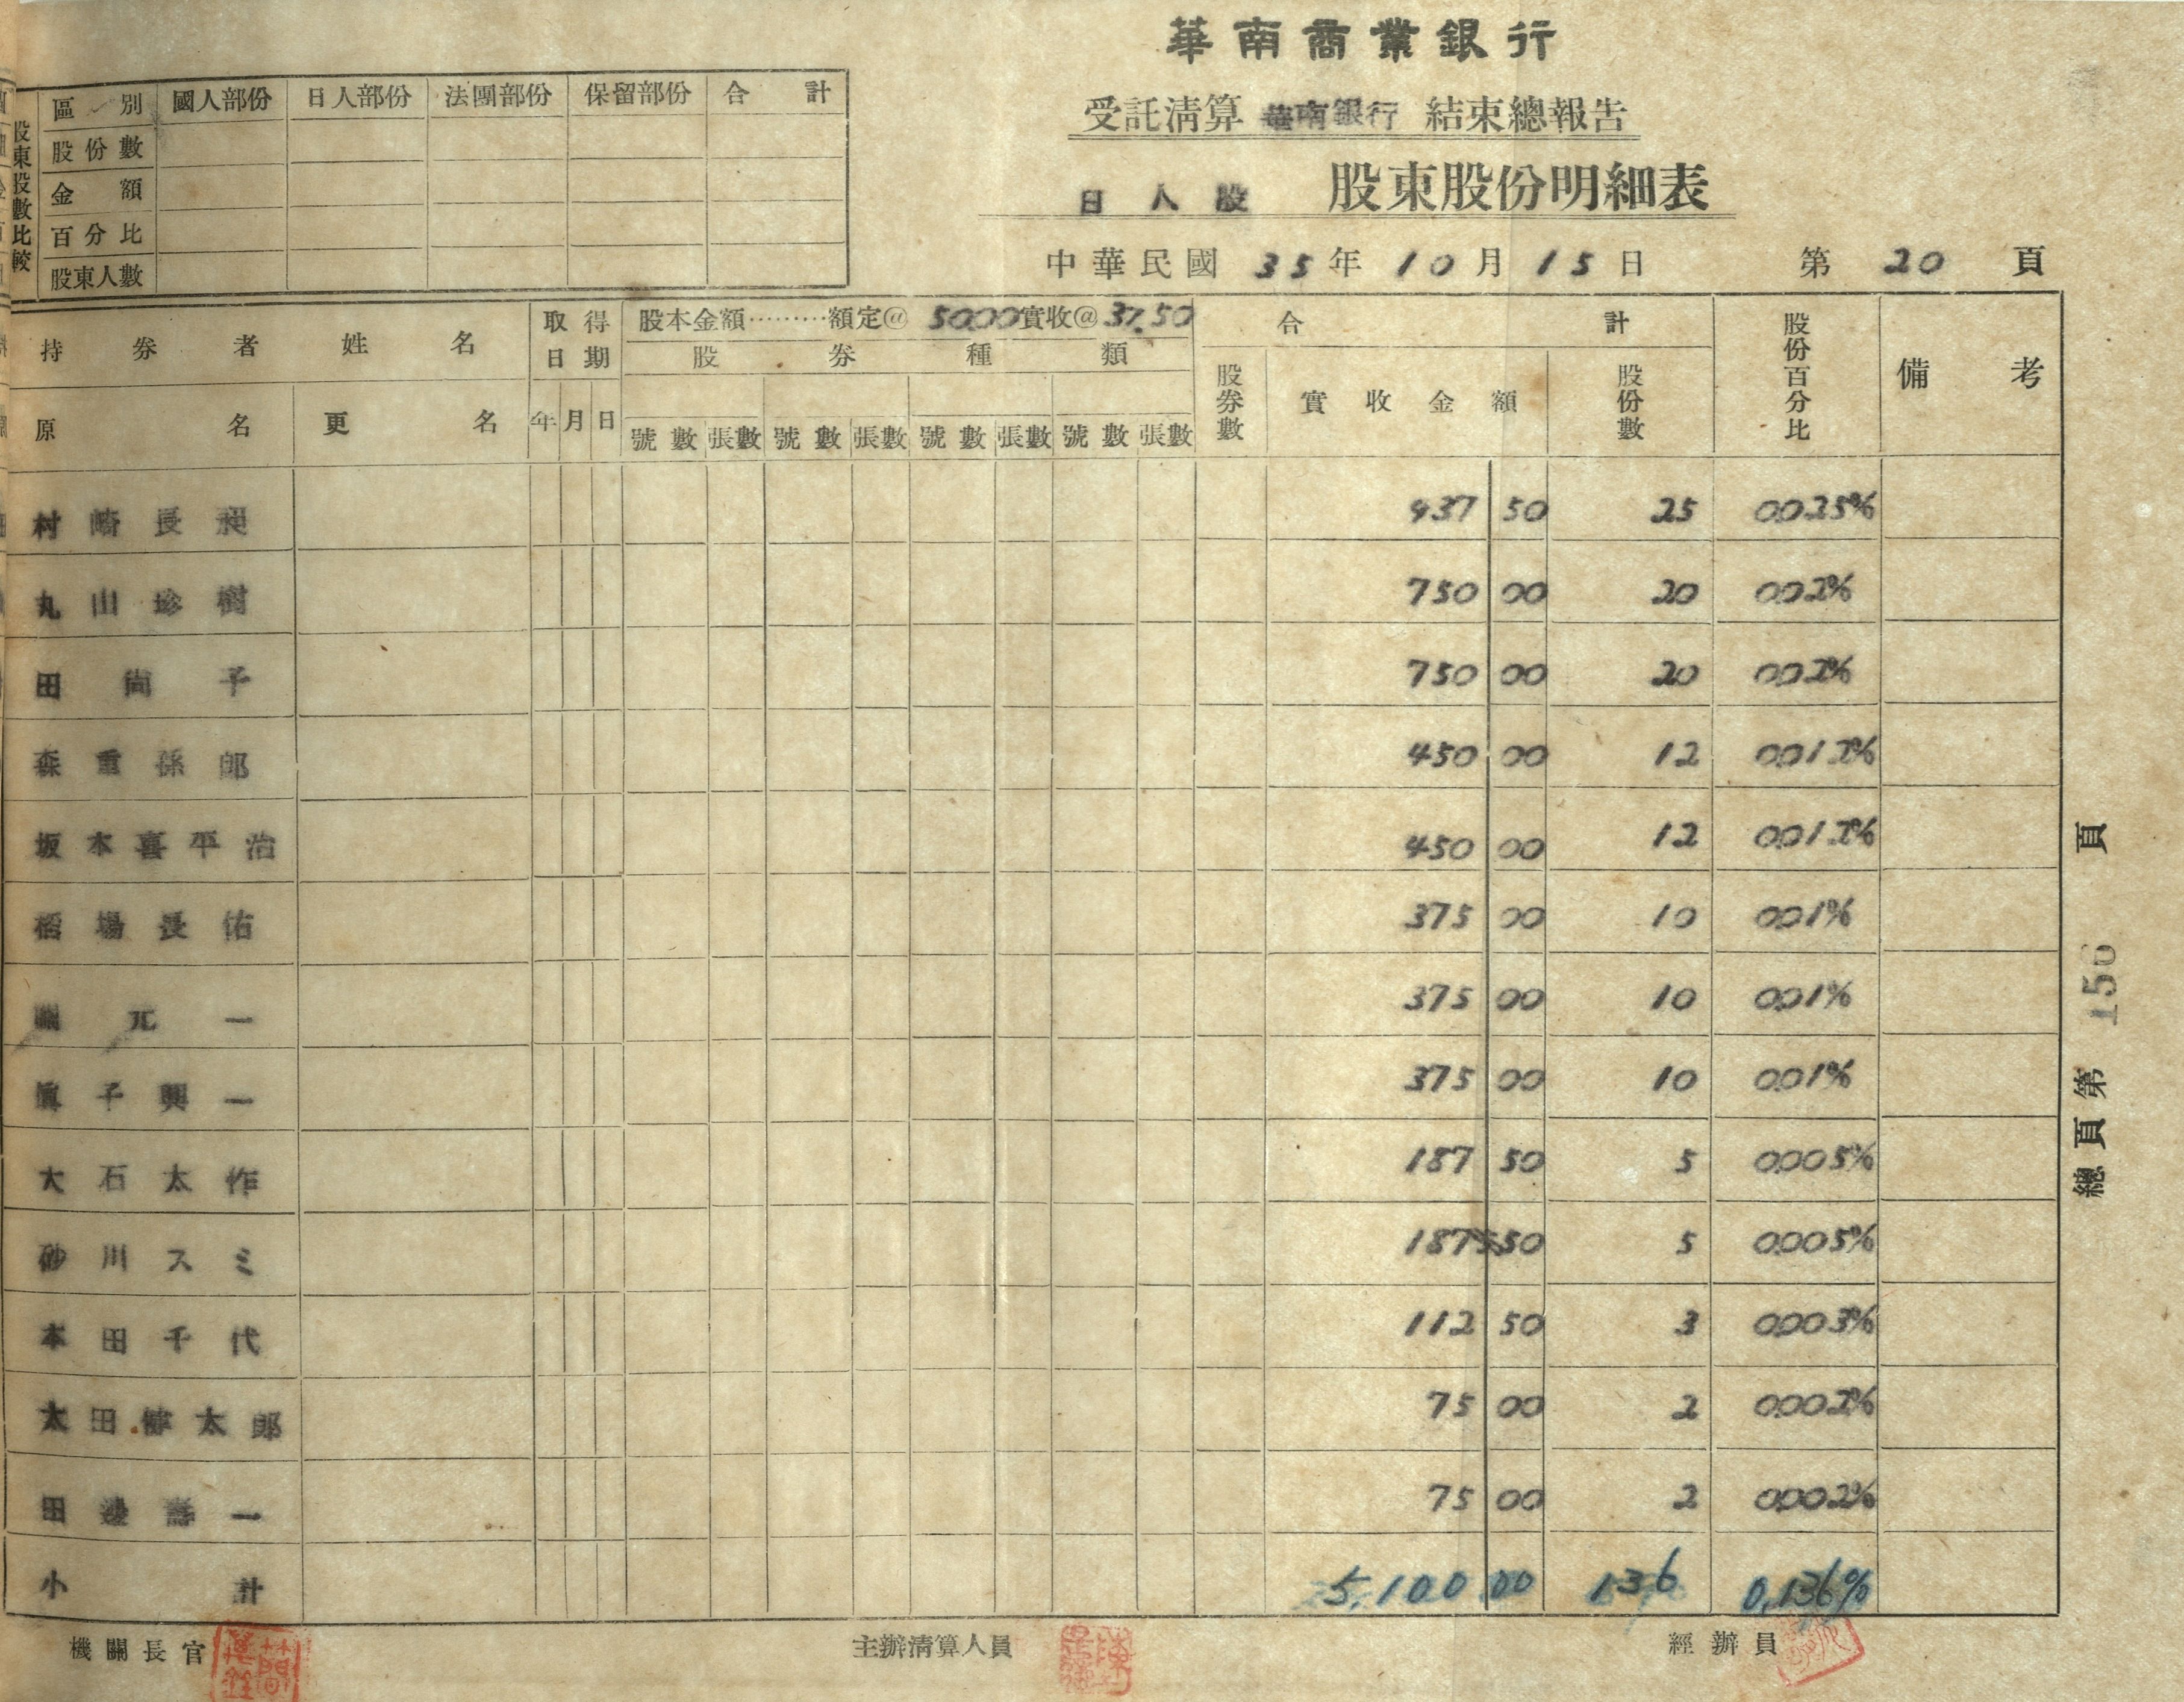 華南商業銀行
受託清算 華南銀行 結束總報告
日人股 股東股份明細表
中華民國 35年 10月 15日 第 20 頁
股東股數比較
區別 國人部份 日人部份 法團部份 保留部份 合計
股份數
金額
百分比
股東人數
持券者姓名 取得日期 股本金額………額定@ 50.00 實收@ 37.50 合計 股份百分比 備考
股券種類
原名 更名 年 月 日 號數 張數 號數 張數 號數 張數 號數 張數 股券數 實收金額 股份數
村崎長昶 937 50 25 0.025%
丸山珍樹 750 00 20 0.02%
田尚子 750 00 20 0.02%
森重孫郎 450 00 12 0.012%
坂本喜平治 450 00 12 0.012%
稻場長佑 375 00 10 0.01%
元一 375 00 10 0.01%
眞子興一 375 00 10 0.01%
大石太作 187 50 5 0.005%
砂川スミ 187 50 5 0.005%
本田千代 112 50 3 0.003%
太田健太郎 75 00 2 0.002%
田邊壽一 75 00 2 0.002%
小計 5,100 00 136 0.136%
機關長官 主辦清算人員 經辦員
總頁第 156 頁